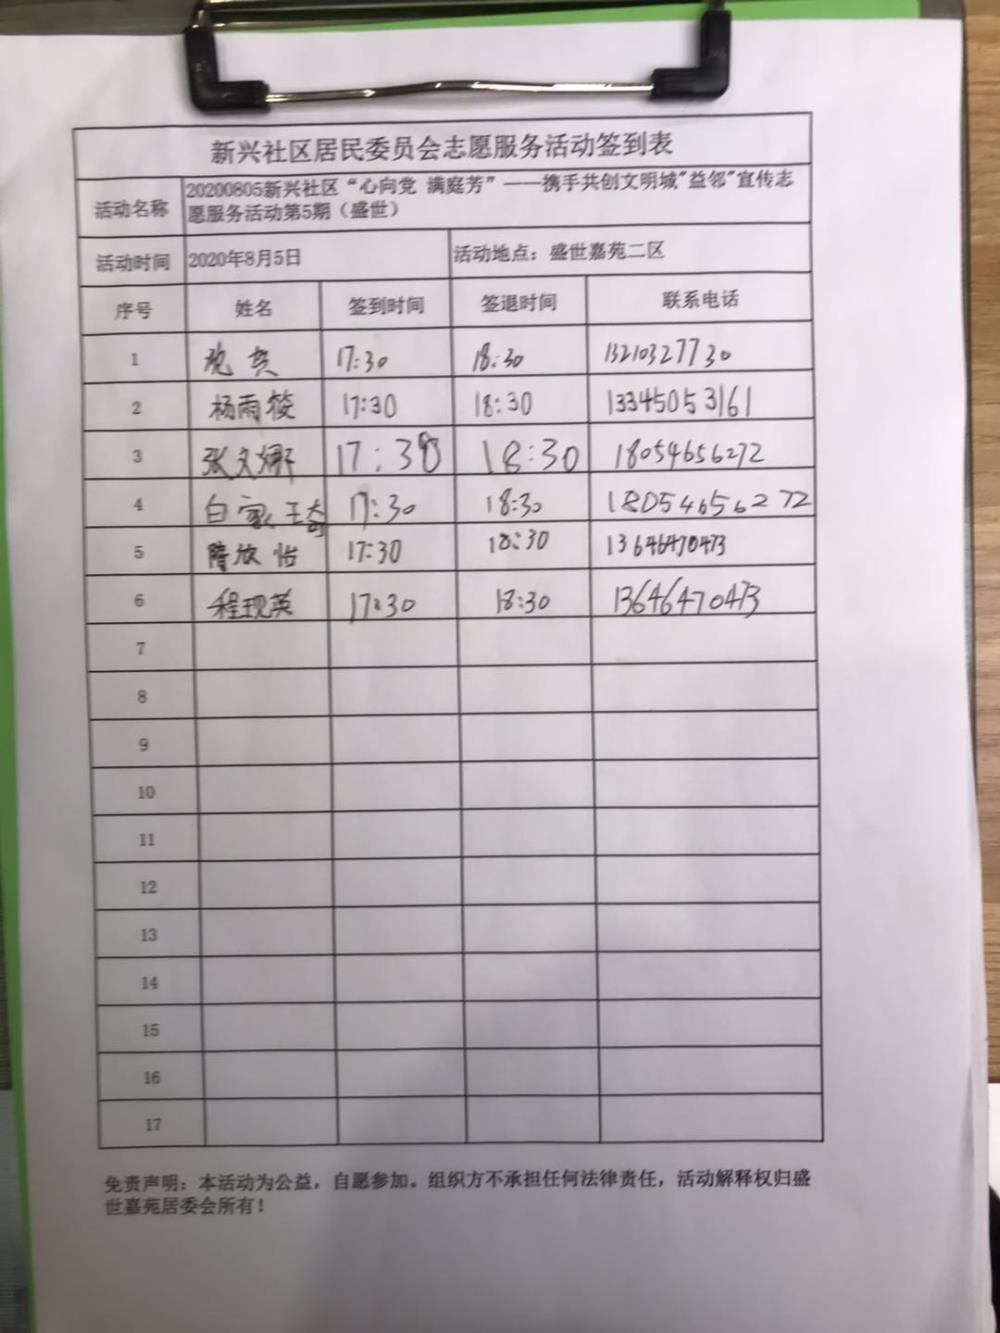 新兴社区居民委员会志愿服务活动签到表
活动名称 20200805新兴社区“心向党 满庭芳”——携手共创文明城"益邻"宣传志
愿服务活动第5期（盛世）
活动时间 2020年8月5日 活动地点：盛世嘉苑二区
序号 姓名 签到时间 签退时间 联系电话
1 17:30 18:30 13210327730
2 杨雨筱 17:30 18:30 13345053161
3 张文娜 17:30 18:30 18054656272
4 白家琦 17:30 18:30 18054656272
5 隋放怡 17:30 18:30 13646470473
6 程现英 17:30 18:30 13646470473
7
8
9
10
11
12
13
14
15
16
17
免责声明：本活动为公益，自愿参加。组织方不承担任何法律责任，活动解释权归盛
世嘉苑居委会所有！